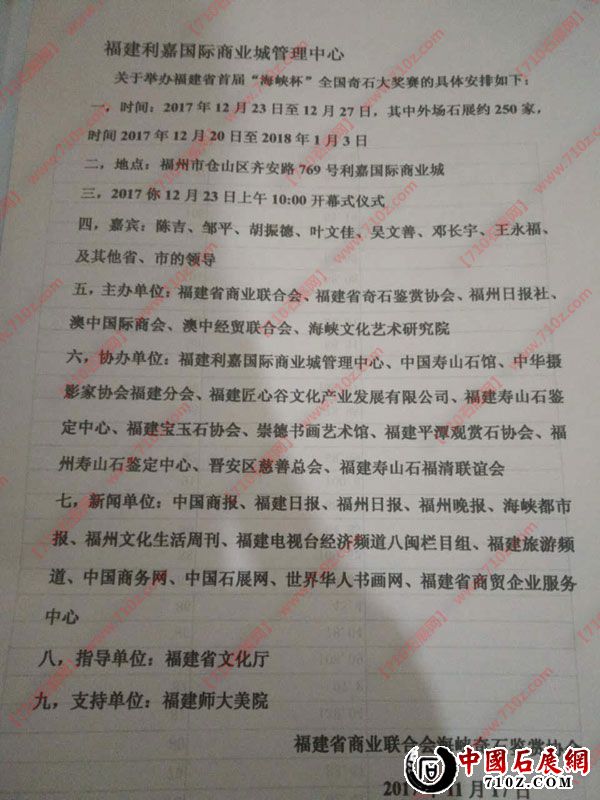 福建利嘉国际商业城管理中心
关于举办福建省首届“海峡杯”全国奇石大奖赛的具体安排如下：
一，时间：2017年12月23日至12月27日，其中外场石展约250家，
时间2017年12月20日至2018年1月3日
二，地点：福州市仓山区齐安路769号利嘉国际商业城
三，2017你12月23日上午10:00开幕式仪式
四，嘉宾：陈吉、邹平、胡振德、叶文佳、吴文善、邓长宇、王永福、
及其他省、市的领导
五，主办单位：福建省商业联合会、福建省奇石鉴赏协会、福州日报社、
澳中国际商会、澳中经贸联合会、海峡文化艺术研究院
六，协办单位：福建利嘉国际商业城管理中心、中国寿山石馆、中华摄
影家协会福建分会、福建匠心谷文化产业发展有限公司、福建寿山石鉴
定中心、福建宝玉石协会、崇德书画艺术馆、福建平潭观赏石协会、福
州寿山石鉴定中心、晋安区慈善总会、福建寿山石福清联谊会
七，新闻单位：中国商报、福建日报、福州日报、福州晚报、海峡都市
报、福州文化生活周刊、福建电视台经济频道八闽栏目组、福建旅游频
道、中国商务网、中国石展网、世界华人书画网、福建省商贸企业服务
中心
八，指导单位：福建省文化厅
九，支持单位：福建师大美院
福建省商业联合会海峡奇石鉴赏协会
中國石展網
www.710z.com
11月17日